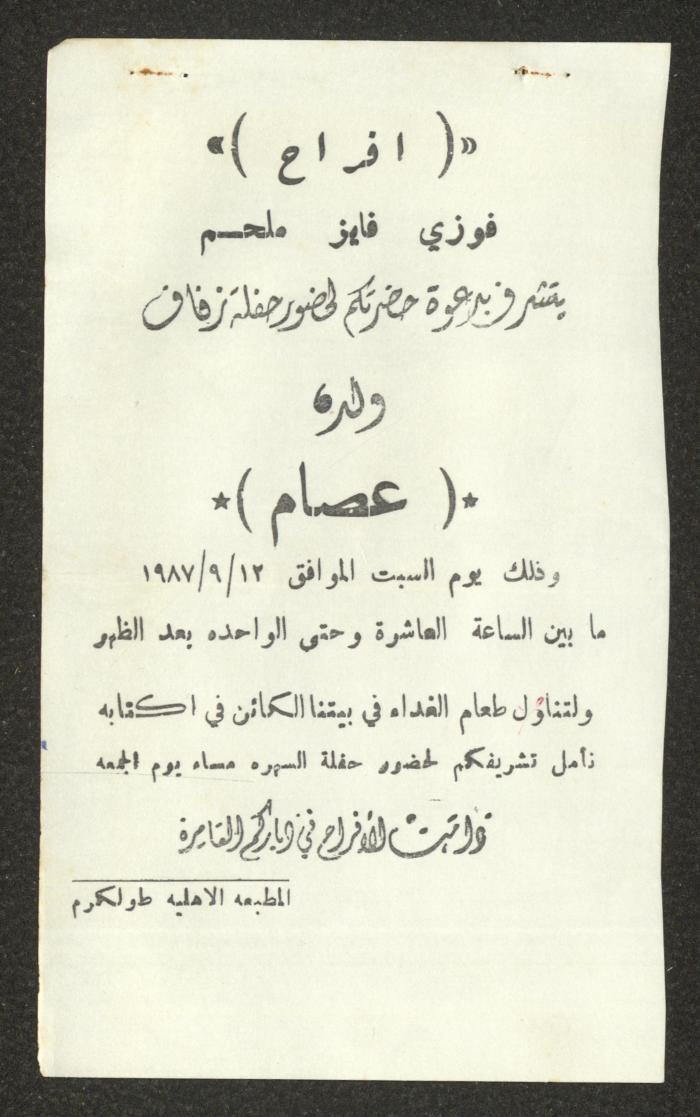 «( افراح )»
فوزي فايز ملحم
يتشرف بدعوة حضرتكم لحضور حفلة زفاف
ولده
★( عصام )★
وذلك يوم السبت الموافق ١٩٨٧/٩/١٢
ما بين الساعة العاشرة وحتى الواحده بعد الظهر
ولتناول طعام الغداء في بيتنا الكائن في اكتابه
نأمل تشريفكم لحضور حفلة السهره مساء يوم الجمعه
دامت الأفراح في دياركم العامرة
المطبعه الاهليه طولكرم